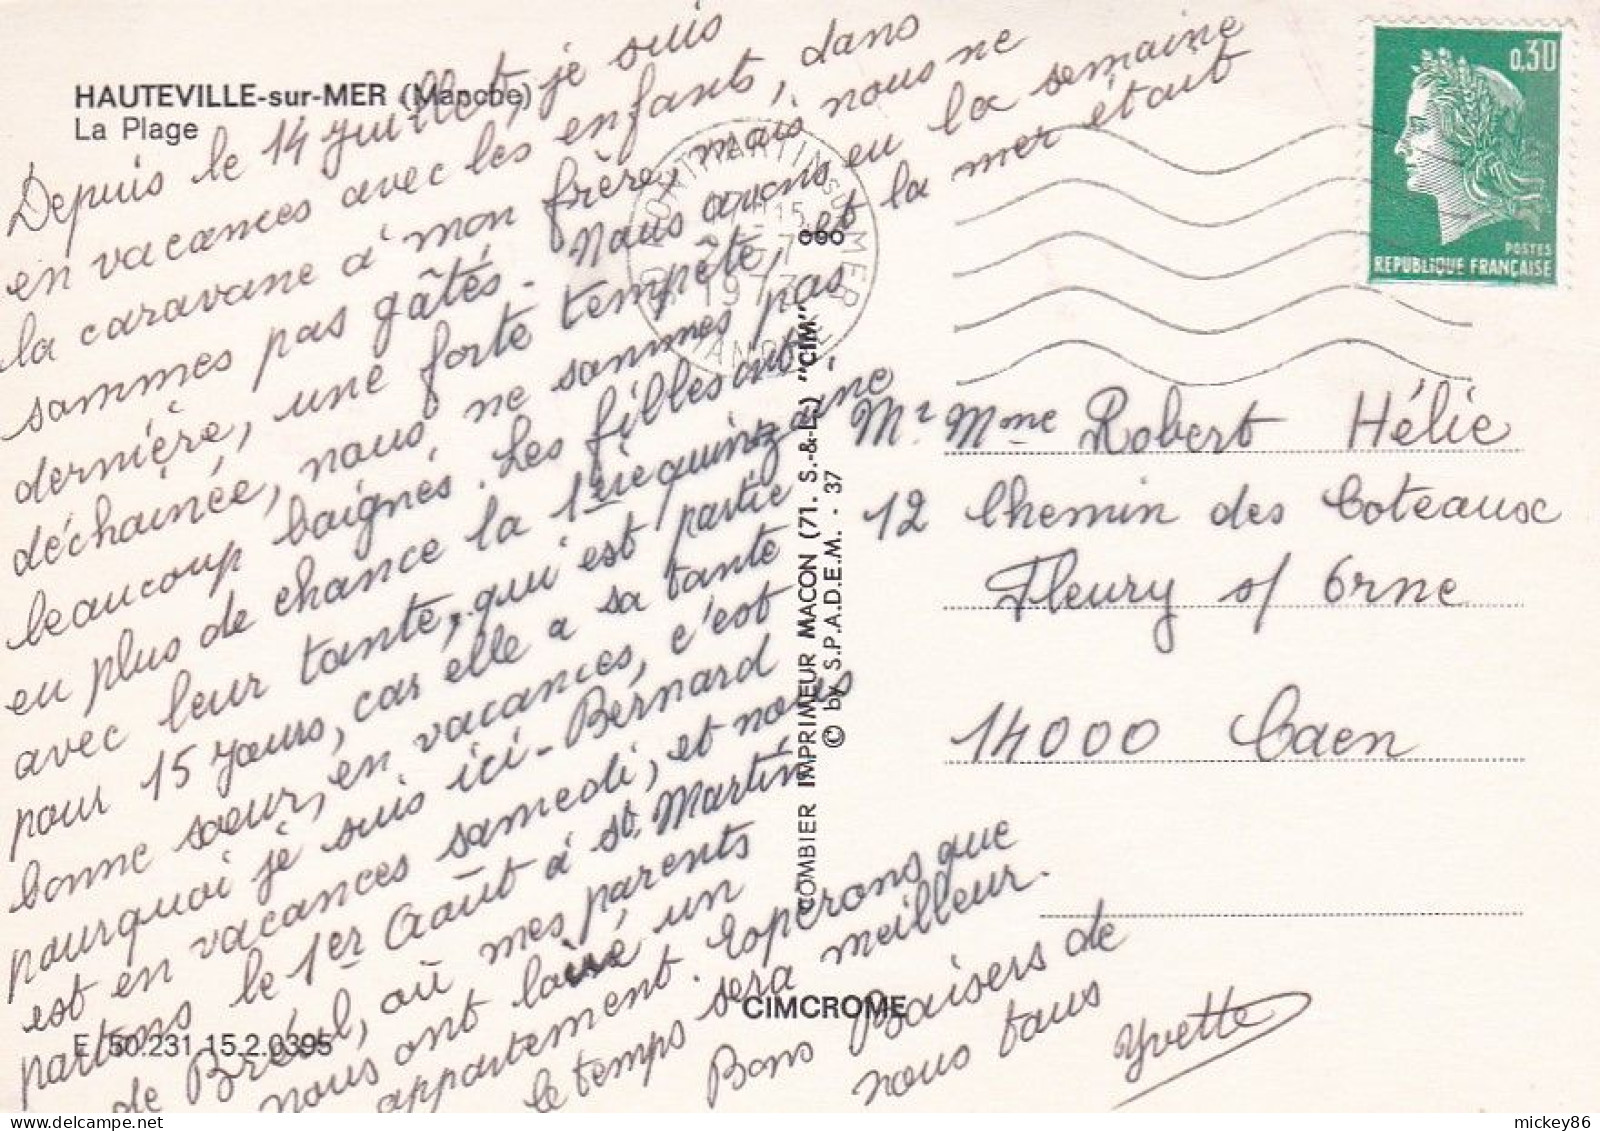 HAUTEVILLE-sur-MER (Manche)
La Plage
Depuis le 14 Juillet, je suis
en vacances avec les enfants, dans
la caravane à mon frère, mais nous ne
sommes pas gâtés. Nous avons eu la semaine
dernière, une forte tempête, et la mer était
déchainée, nous ne sommes pas
beaucoup baignés. Les filles ont
eu plus de chance la 1ère quinzaine
avec leur tante, qui est partie
pour 15 jours, car elle a sa tante
bonne soeur, en vacances, c'est
pourquoi je suis ici - Bernard
est en vacances samedi, et nous
partons le 1er Août à St. Martin
de Bréal, où mes parents
nous ont loué un
appartement. Espérons que
le temps sera meilleur.
Bons Baisers de
nous tous
Yvette
E 50.231 15.2.0395
CIMCROME
COMBIER IMPRIMEUR MACON (71. S.-&-L.) "CIM"
© by S.P.A.D.E.M. - 37
MONTMARTIN S MER
1973
0,30
POSTES
REPUBLIQUE FRANÇAISE
Mr Mme Robert Hélie
12 Chemin des Coteaux
Fleury s/ Orne
14000 Caen
mickey86 - delcampe.net